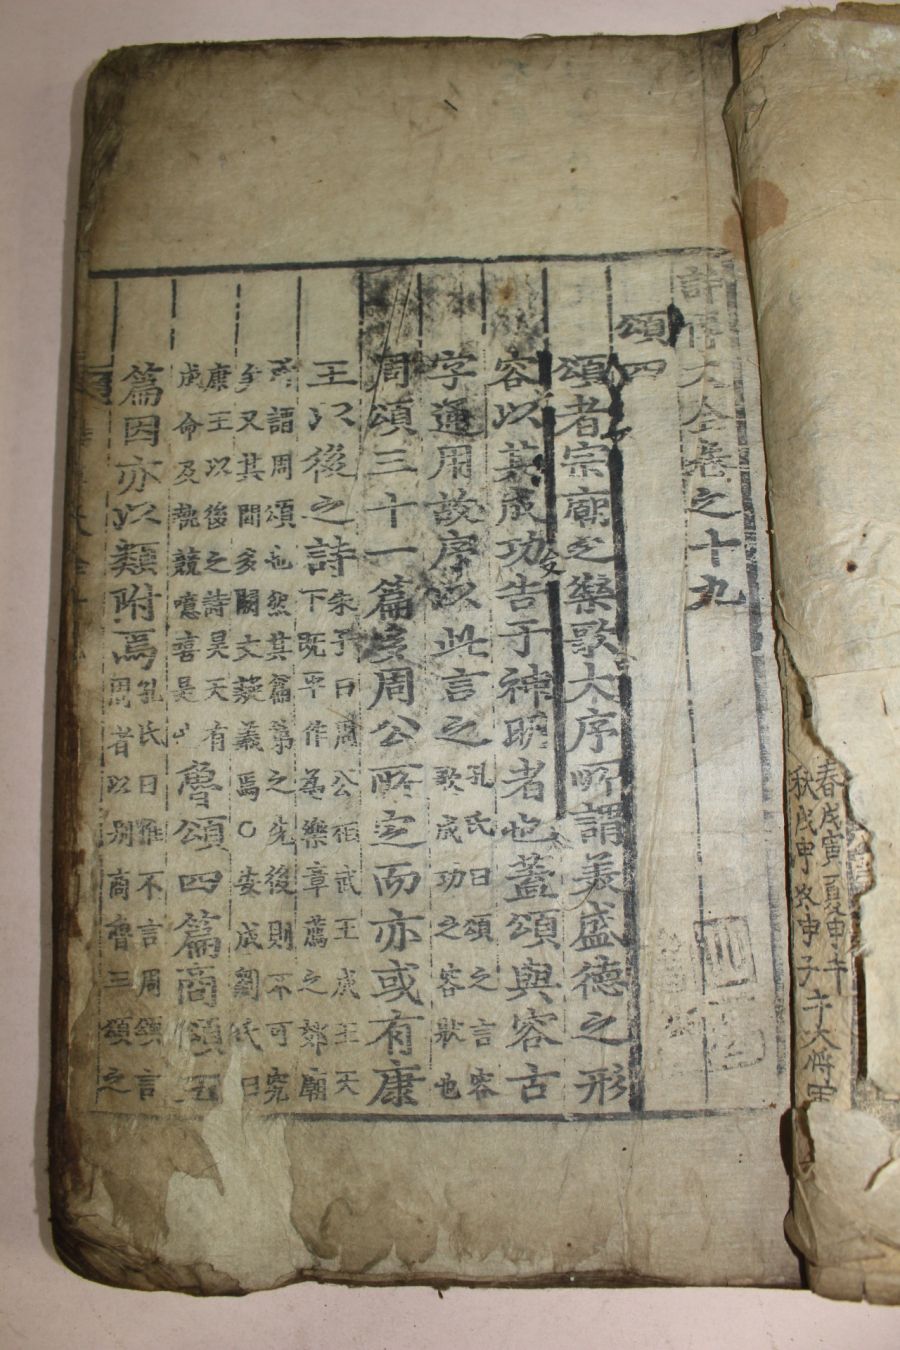 詩傳大全卷之十九
頌四
頌者宗廟之樂歌大序所謂美盛德之形
容以其成功告于神明者也蓋頌與容古
字通用故序以此言之孔氏曰頌之言容
歌成功之容狀也
周頌三十一篇多周公所定而亦或有康
王以後之詩朱子曰周公相武王成王天
下既平作爲樂章薦之郊廟
所謂周頌也然其篇第之先後則不可究
矣又其間多闕文疑義焉○安成劉氏曰
康王以後之詩昊天有
成命及執競噫嘻是也
魯頌四篇商頌五
篇因亦以類附焉孔氏曰雅不言周頌言
周者以別商魯三頌之
春戊寅夏甲午
秋戊申冬甲子